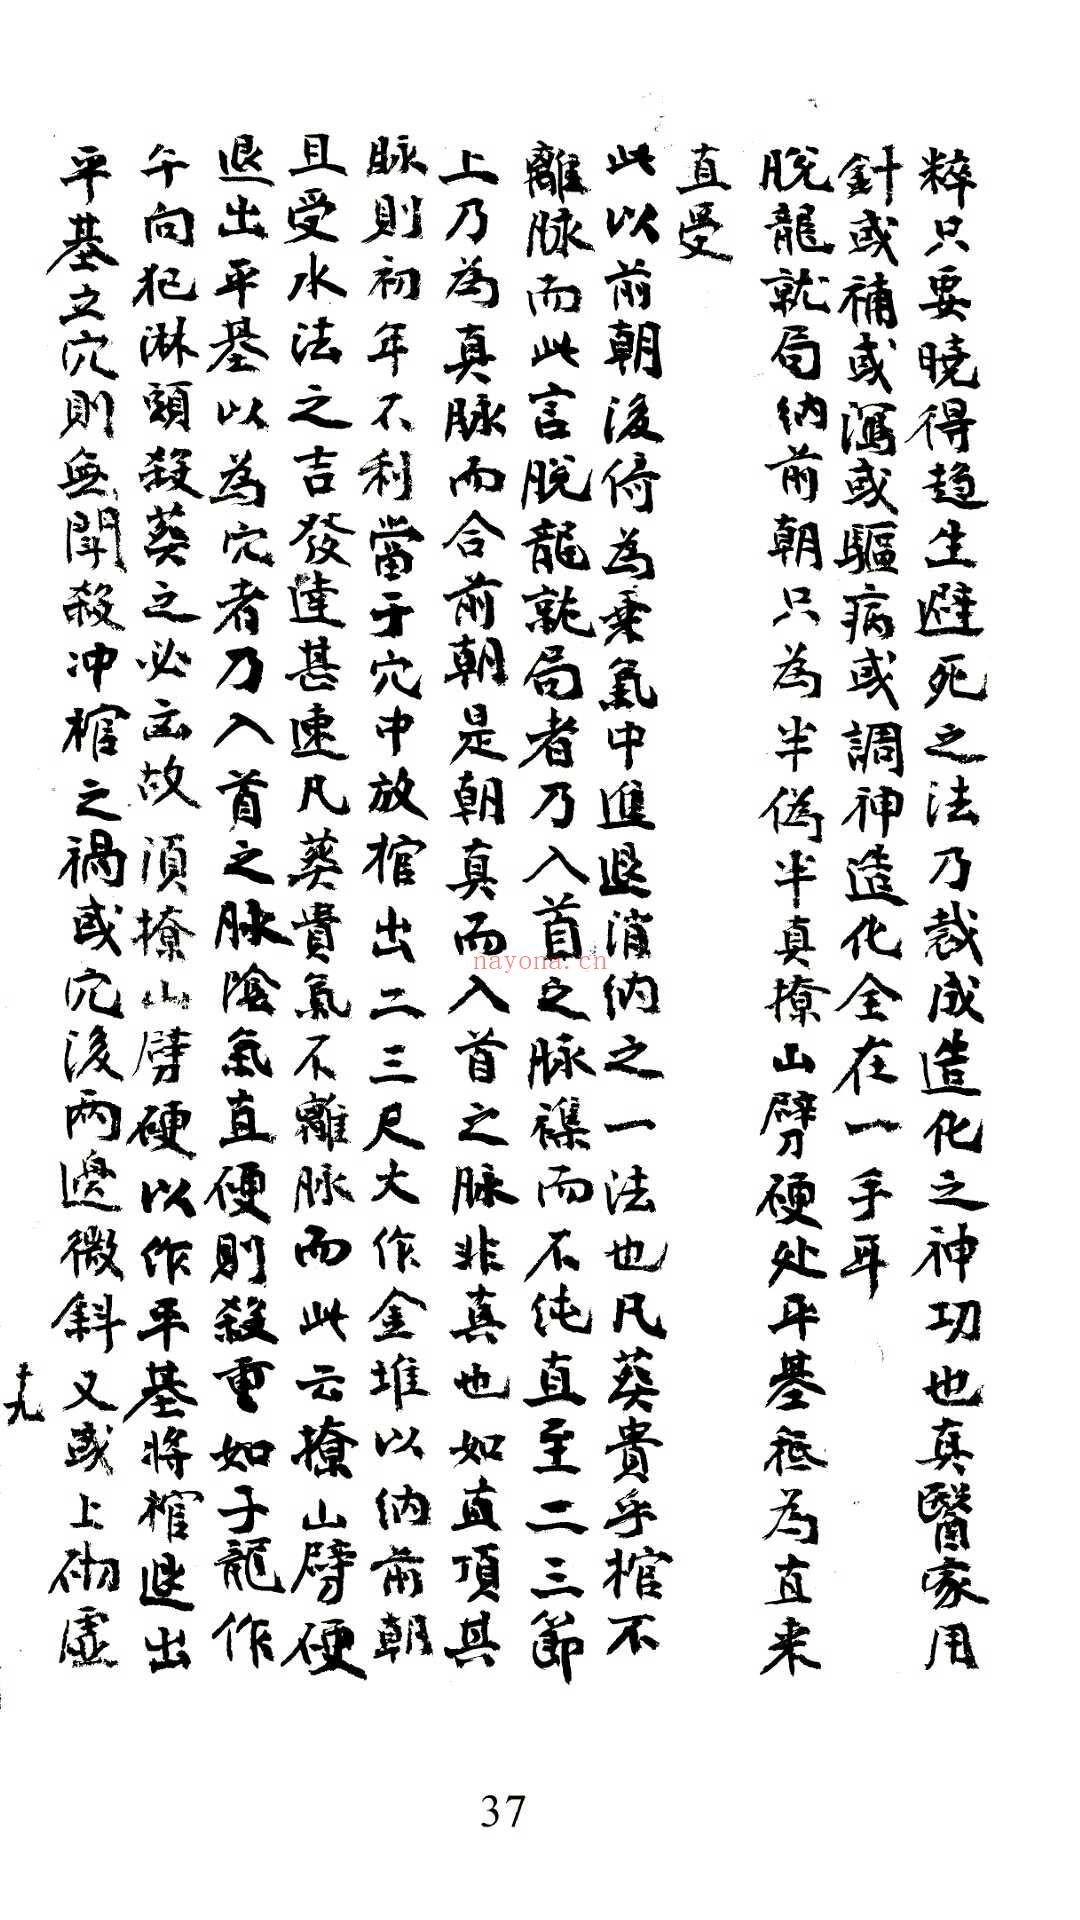 粹只要曉得趋生避死之法乃裁成造化之神功也真醫家用
針或補或瀉或驅病或調神造化全在一手耳
脫龍就局納前朝只為半偽半真撩山劈硬处平基秪為直来
直受
此以前朝後倚為乗氣中進退消納之一法也凡葬貴乎棺不
離脉而此言脫龍就局者乃入首之脉襍而不純直至二三節
上乃為真脉而合前朝是朝真而入首之脉非真也如直頂其
脉則初年不利當于穴中放棺出二三尺大作金堆以納前朝
且受水法之吉發達甚速凡葬貴氣不離脉而此云撩山劈硬
退出平基以為穴者乃入首之脉陰氣直硬則殺重如子龍作
午向犯淋頭殺葬之必凶故須撩山劈硬以作平基將棺退出
平基立穴則無鬥殺冲棺之禍或穴後兩邊微斜又或上砌虛
十九
nayona.cn
37